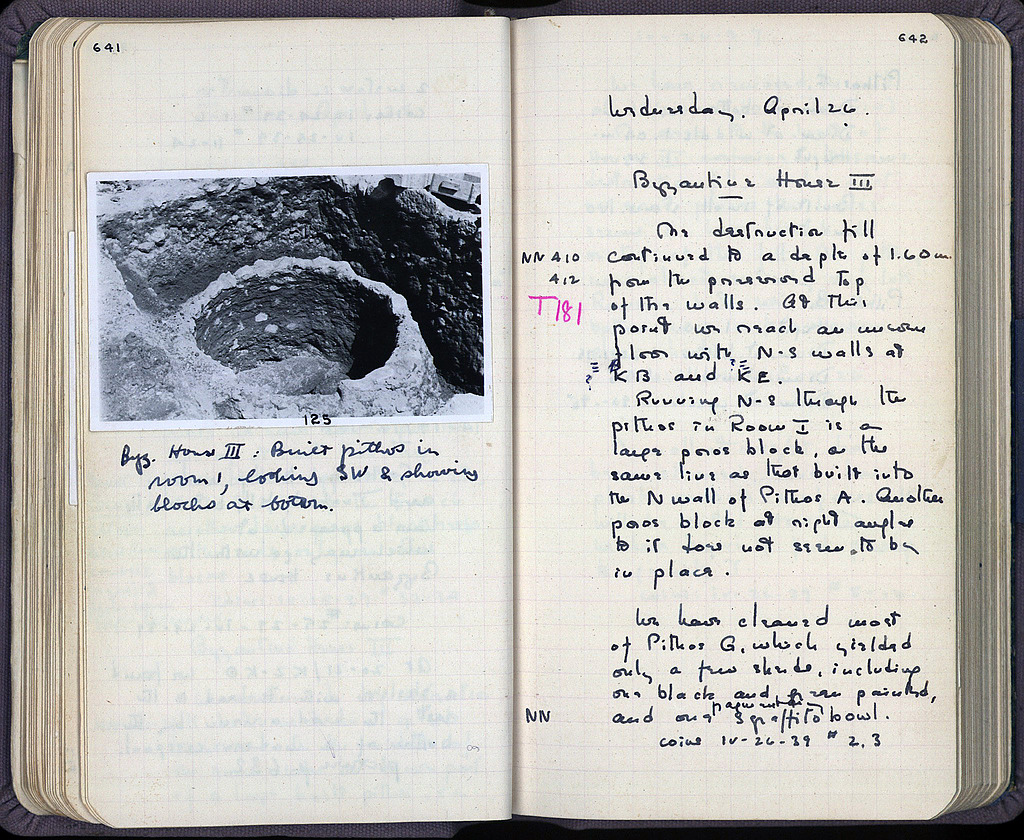 641
125
Byz. House III : Built pithos in
room 1, looking SW & showing
blocks at bottom.
642
Wednesday, April 26.
Byzantine House III
The destruction fill
NN 410 continued to a depth of 1.60 m.
412 from the preserved top
T181 of the walls. At this
point we reach an uneven
floor with N-S walls at
? KB and ? KE.
Running N-S through the
pithos in Room I is a
large poros block, on the
same line as that built into
the N wall of Pithos A. Another
poros block at right angles
to it does not seem to be
in place.
We have cleaned most
of Pithos G, which yielded
only a few sherds, including
one black and green painted,
fragment of
NN and one sgraffito bowl.
coins IV-26-39 # 2, 3